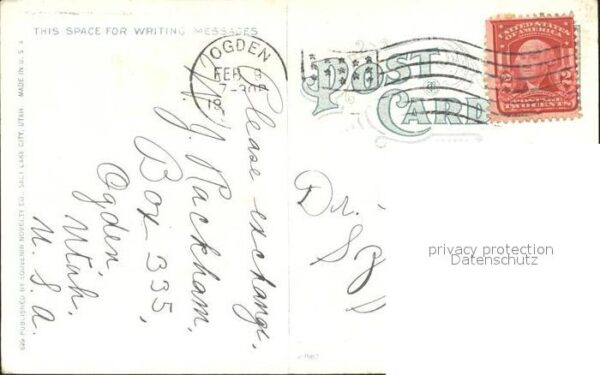 THIS SPACE FOR WRITING MESSAGES
Please exchange.
Rackham,
Box 335,
Ogden,
Utah,
U. S. A.
OGDEN
FEB
POST
CARD
UNITED STATES
OF AMERICA
2 2
POSTAGE
TWO CENTS
Dr.
privacy protection
Datenschutz
PUBLISHED BY SOUVENIR NOVELTY CO., SALT LAKE CITY, UTAH. MADE IN U. S. A.